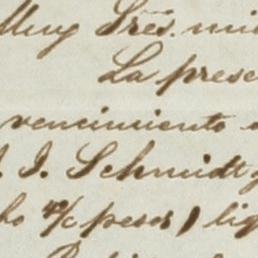 Muy Sres. mi
La prese
vencimiento
J. Schmidt y
pesos lig